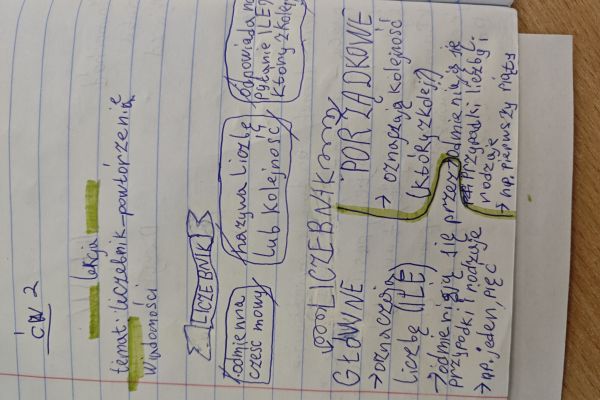 ćw 2
lekcja
temat: liczebnik - powtórzenie
wiadomości
LICZEBNIK
1. odmienna
część mowy
nazywa liczbę
lub kolejność
odpowiada na
pytanie ILE?
który z kolei?
LICZEBNIK
GŁÓWNE
→ oznacza
liczbę (ILE)
→ odmieniają się przez
przypadki i rodzaje
→ np. jeden, pięć
PORZĄDKOWE
→ oznaczają kolejność
(który z kolei)
→ odmieniają się
przypadki liczby i
rodzaje
→ np. pierwszy, piąty